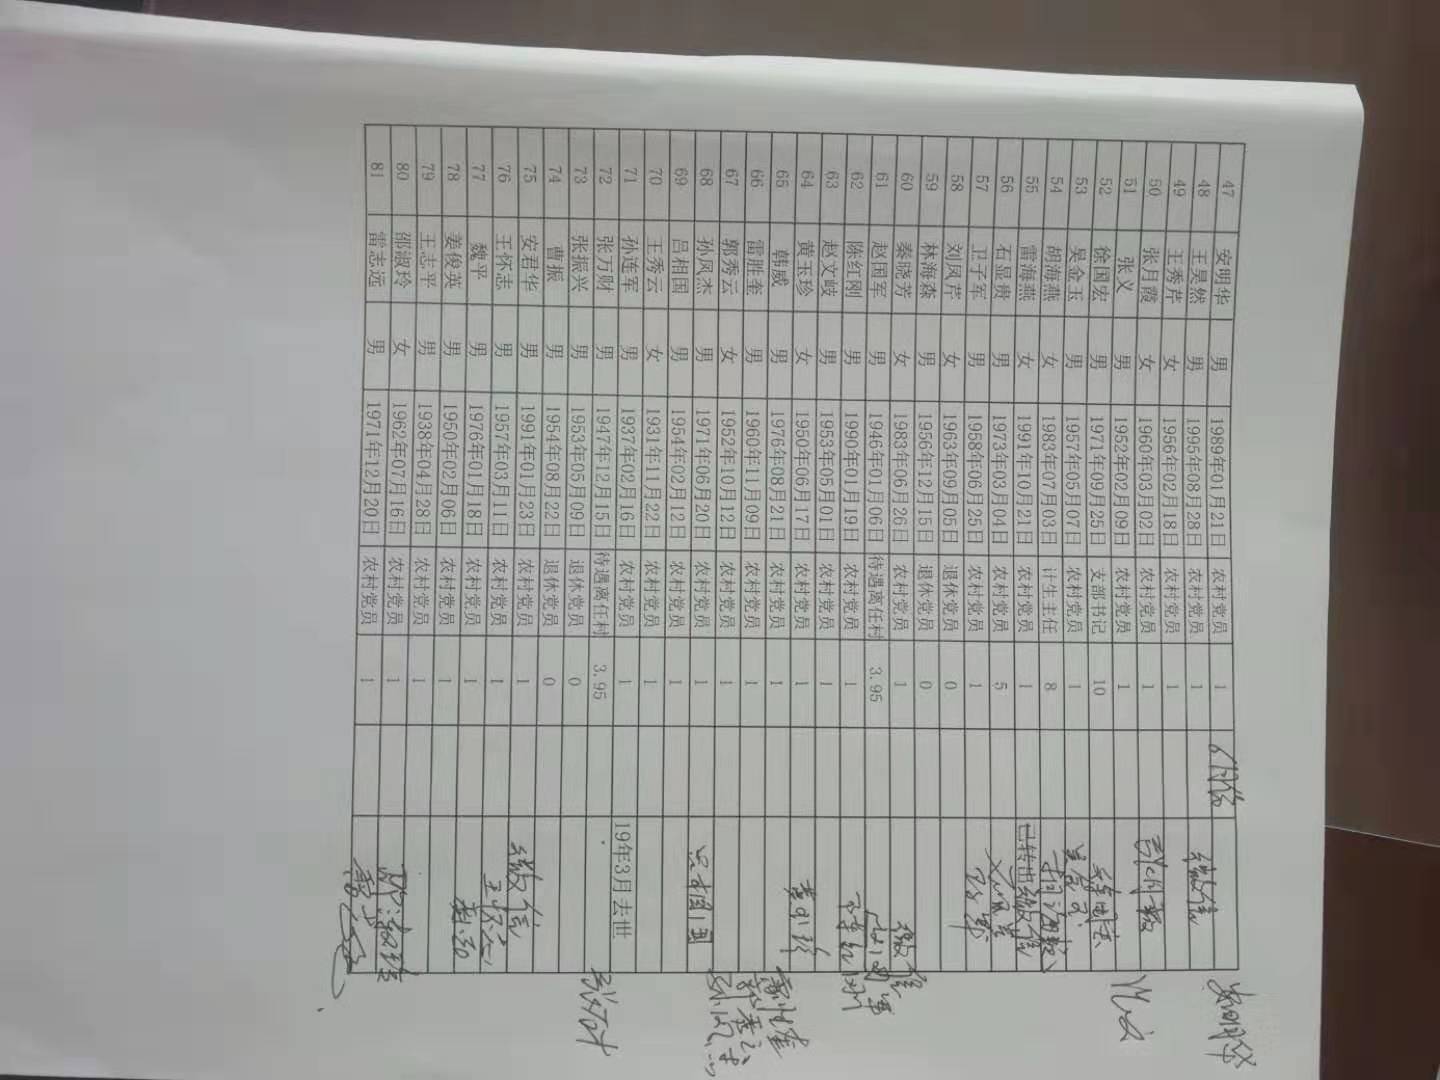 47 安明华 男 1989年01月21日 农村党员 1
48 王昊然 男 1995年08月28日 农村党员 1 微信
49 王秀芹 女 1956年02月18日 农村党员 1
50 张月霞 女 1960年03月02日 农村党员 1
51 张义 男 1952年02月09日 农村党员 1
52 徐国宏 男 1971年09月25日 支部书记 10
53 吴金玉 男 1957年05月07日 农村党员 1
54 胡海燕 女 1983年07月03日 计生主任 8
55 雷海燕 女 1991年10月21日 农村党员 1 已转出微信
56 石显贵 男 1973年03月04日 农村党员 5
57 卫子军 男 1958年06月25日 农村党员 1
58 刘凤芹 女 1963年09月05日 退休党员 0
59 林海森 男 1956年12月15日 退休党员 0
60 秦晓芳 女 1983年06月26日 农村党员 1 微信
61 赵国军 男 1946年01月06日 待遇离任村 3.95
62 陈红刚 男 1990年01月19日 农村党员 1
63 赵文岐 男 1953年05月01日 农村党员 1
64 黄玉珍 女 1950年06月17日 农村党员 1
65 韩威 男 1976年08月21日 农村党员 1
66 雷胜奎 男 1960年11月09日 农村党员 1
67 郭秀云 女 1952年10月12日 农村党员 1
68 孙凤杰 男 1971年06月20日 农村党员 1
69 吕相国 男 1954年02月12日 农村党员 1
70 王秀云 女 1931年11月22日 农村党员 1
71 孙连军 男 1937年02月16日 农村党员 1 19年3月去世
72 张万财 男 1947年12月15日 待遇离任村 3.95
73 张振兴 男 1953年05月09日 退休党员 0
74 曹振 男 1954年08月22日 退休党员 0
75 安君华 男 1991年01月23日 农村党员 1 微信
76 王怀志 男 1957年03月11日 农村党员 1
77 魏平 男 1976年01月18日 农村党员 1
78 姜俊英 男 1950年02月06日 农村党员 1
79 王志平 男 1938年04月28日 农村党员 1
80 邵淑玲 女 1962年07月16日 农村党员 1 邵淑玲
81 雷志远 男 1971年12月20日 农村党员 1 雷志远